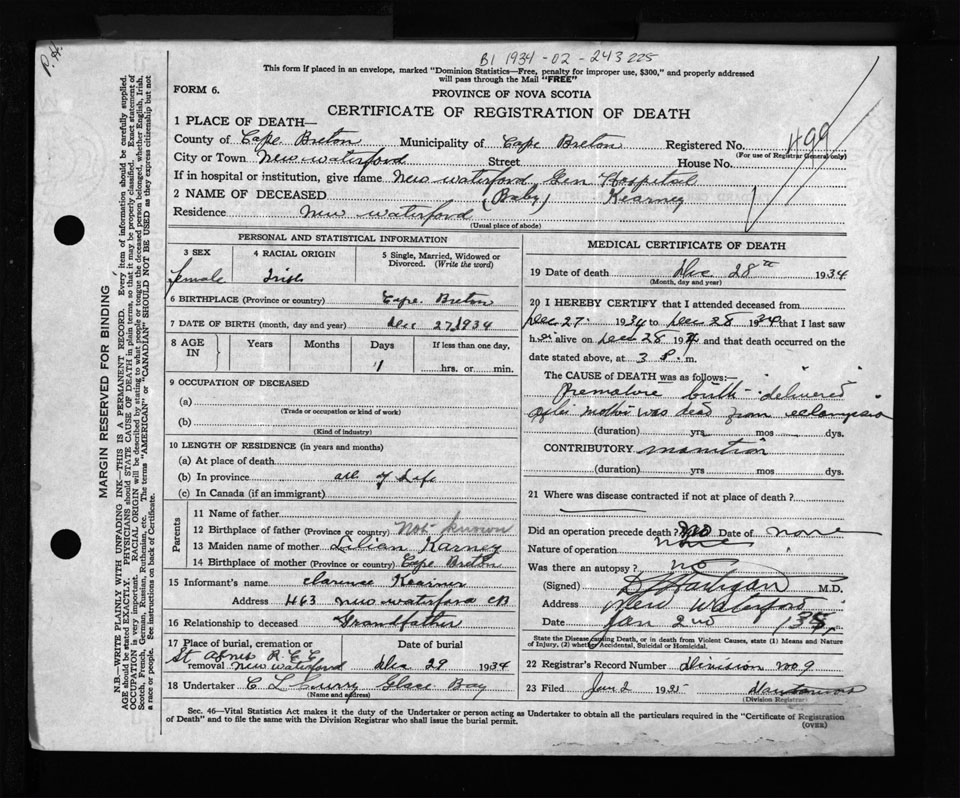 P.H.
B1 1934 - 02 - 243 225
This form if placed in an envelope, marked "Dominion Statistics—Free, penalty for improper use, $300," and properly addressed
will pass through the Mail "FREE"
FORM 6.
PROVINCE OF NOVA SCOTIA
CERTIFICATE OF REGISTRATION OF DEATH
1 PLACE OF DEATH—
County of Cape Breton Municipality of Cape Breton Registered No. 499
(For use of Registrar General only)
City or Town New Waterford Street House No.
If in hospital or institution, give name New Waterford Gen Hospital
2 NAME OF DECEASED (Baby) Kearney
Residence New Waterford
(Usual place of abode)
PERSONAL AND STATISTICAL INFORMATION
3 SEX
female
4 RACIAL ORIGIN
Irish
5 Single, Married, Widowed or
Divorced. (Write the word)
6 BIRTHPLACE (Province or country) Cape Breton
7 DATE OF BIRTH (month, day and year) Dec 27, 1934
8 AGE
IN
Years Months Days If less than one day,
1 hrs. or min.
9 OCCUPATION OF DECEASED
(a)
(Trade or occupation or kind of work)
(b)
(Kind of industry)
10 LENGTH OF RESIDENCE (in years and months)
(a) At place of death
(b) In province all of Life
(c) In Canada (if an immigrant)
Parents
11 Name of father
12 Birthplace of father (Province or country) Not known
13 Maiden name of mother Lilian Karney
14 Birthplace of mother (Province or country) Cape Breton
15 Informant's name Clarence Kearney
Address 463 New Waterford CB
16 Relationship to deceased Grandfather
17 Place of burial, cremation or Date of burial
St Agnes
removal New Waterford Dec 29 1934
18 Undertaker C L Curry Glace Bay
(Name and address)
MEDICAL CERTIFICATE OF DEATH
19 Date of death Dec 28th 1934
(Month, day and year)
20 I HEREBY CERTIFY that I attended deceased from
Dec 27 1934 to Dec 28 1934 that I last saw
h er alive on Dec 28 1934 and that death occurred on the
date stated above, at 3 P. m.
The CAUSE OF DEATH was as follows:—
Premature birth - delivered
after mother was dead from eclampsia
(duration) yrs mos dys.
CONTRIBUTORY inanition
(duration) yrs mos dys.
21 Where was disease contracted if not at place of death?
Did an operation precede death? no Date of none
Nature of operation none
Was there an autopsy? no
(Signed) M.D.
Address New Waterford
Date Jan 2nd 1935
State the Disease causing Death, or in death from Violent Causes, state (1) Means and Nature
of Injury, (2) whether Accidental, Suicidal or Homicidal.
22 Registrar's Record Number Division No. 9
23 Filed Jan 2 1935
(Division Registrar)
Sec. 46—Vital Statistics Act makes it the duty of the Undertaker or person acting as Undertaker to obtain all the particulars required in the "Certificate of Registration
of Death" and to file the same with the Division Registrar who shall issue the burial permit.
(OVER)
MARGIN RESERVED FOR BINDING
N.B.—WRITE PLAINLY WITH UNFADING INK—THIS IS A PERMANENT RECORD. Every item of information should be carefully supplied.
AGE should be stated EXACTLY. PHYSICIANS should STATE CAUSE OF DEATH in plain terms, so that it may be properly classified. Exact statement of
OCCUPATION is very important. RACIAL ORIGIN will be described by stating to what people or tongue the deceased person belonged, whether English, Irish,
Scotch, French, German, Russian, Ruthenian, etc. The terms "AMERICAN" or "CANADIAN" SHOULD NOT BE USED as they express citizenship but not
a race or people. See instructions on back of Certificate.